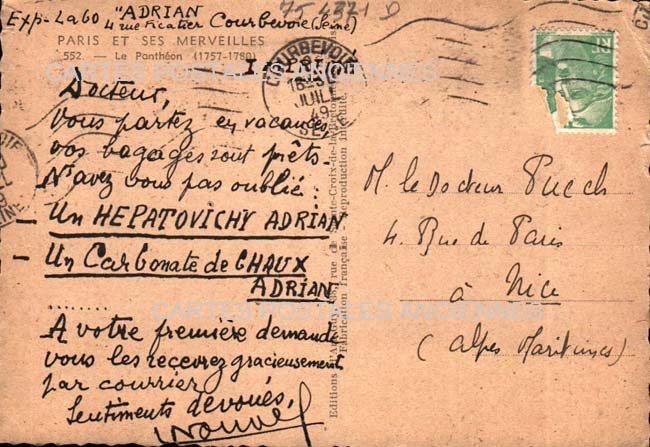 75 4321 D
Exp- Labo "ADRIAN
4 rue Ficatier Courbevoie (Seine)
PARIS ET SES MERVEILLES
552. - Le Panthéon (1757-1780)
CARTES POSTALES ANCIENNES
COURBEVOIE
JUIL
49
SEINE
Docteur,
Vous partez en vacances
vos bagages sont prêts.
N'avez vous pas oublié...
- Un HEPATOVICHY ADRIAN
- Un Carbonate de CHAUX
ADRIAN
........
CARTES POSTALES ANCIENNES
A votre première demande
vous les recevrez gracieusement
par courrier
Sentiments dévoués,
Fabrication française - Reproduction interdite
M. le Docteur Puech
4. Rue de Paris
à Nice
(Alpes Maritimes)